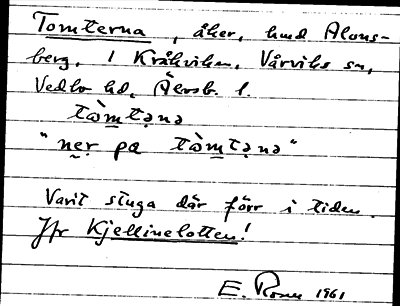 Tomterna, åker, hmd Alons-
berg, 1 Kråkviken, Vårviks sn,
Vedbo hd, Älvsb. l.
tòmtənə
"nęr pa tòmtənə"
Varit stuga där förr i tiden.
Jfr Kjellinelotten!
E. Rosen 1961